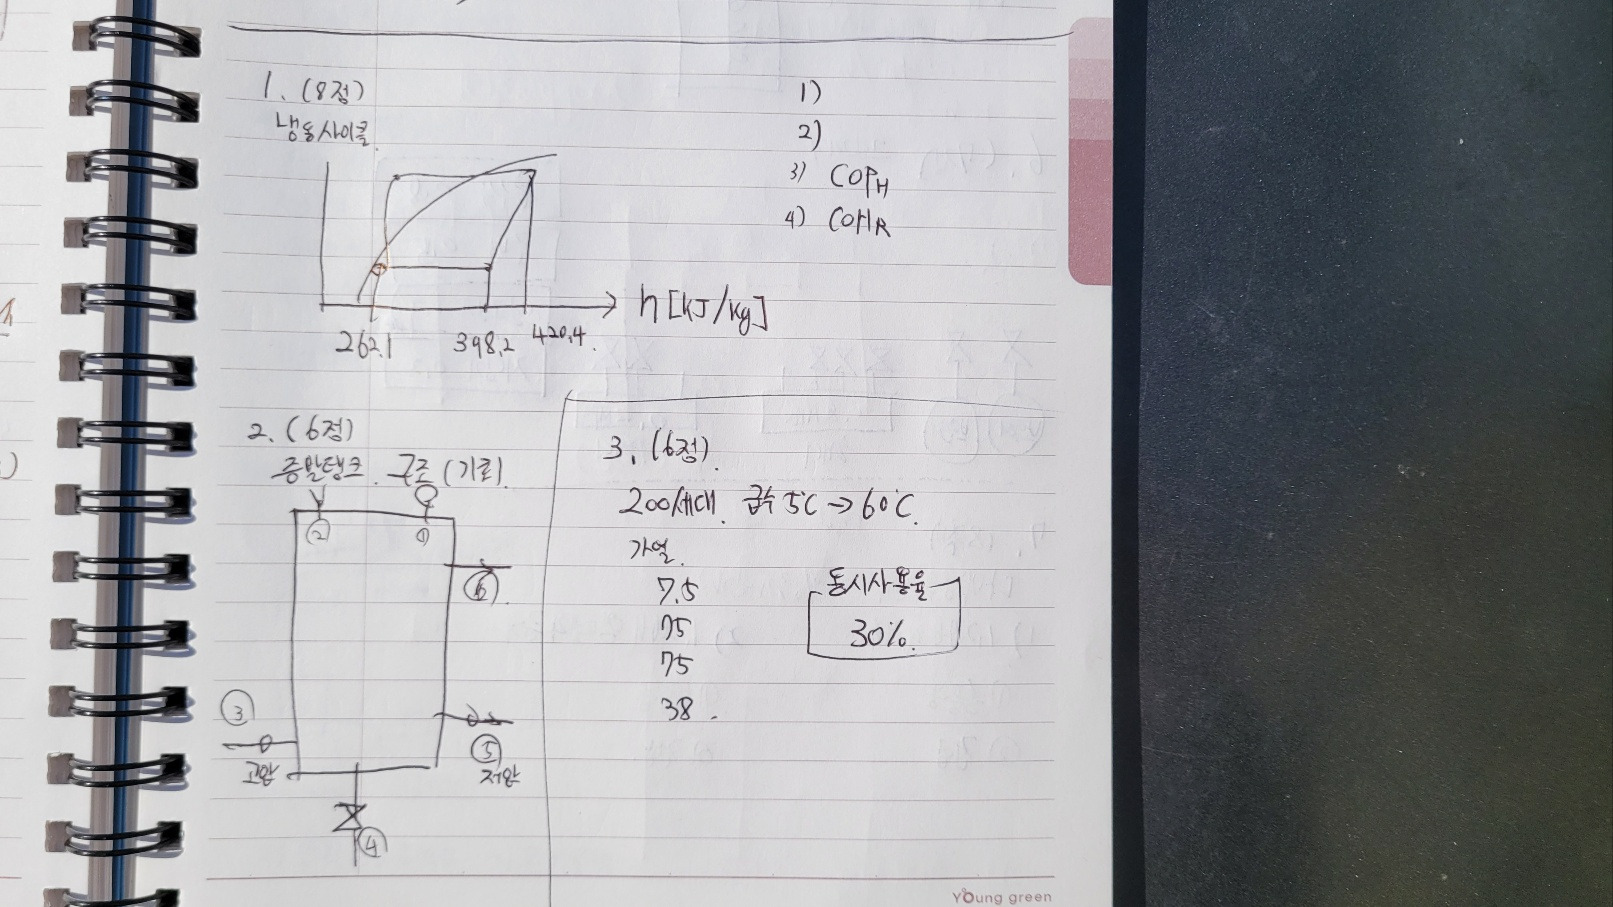 1. (8점)
냉동사이클
1)
2)
3) COPH
4) COHR
h [kJ/kg]
262.1 398.2 420.4.
2. (6점)
증발탱크. 구조 (기호).
②
①
⑥
③
고압
⑤
저압
④
3. (6점).
200세대. 급수 5℃ → 60℃.
가열.
7.5
75
75
38.
동시사용율
30%.
Young green